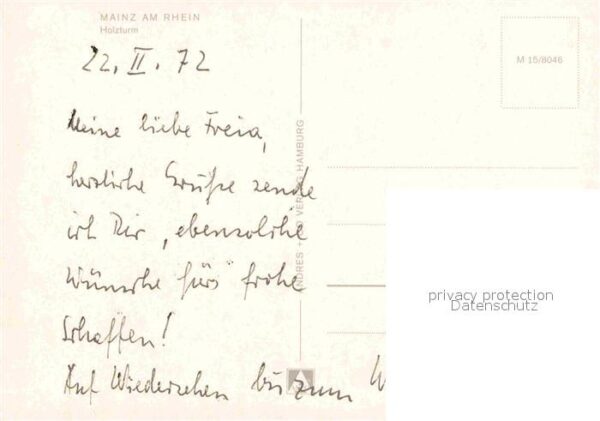 MAINZ AM RHEIN
Holzturm
22. II. 72
M 15/8046
Meine liebe Freia,
herzliche Grüße sende
ich Dir, ebensolche
Wünsche fürs frohe
Schaffen!
Auf Wiedersehen bis zum
ANDRES + CO VERLAG HAMBURG
privacy protection
Datenschutz